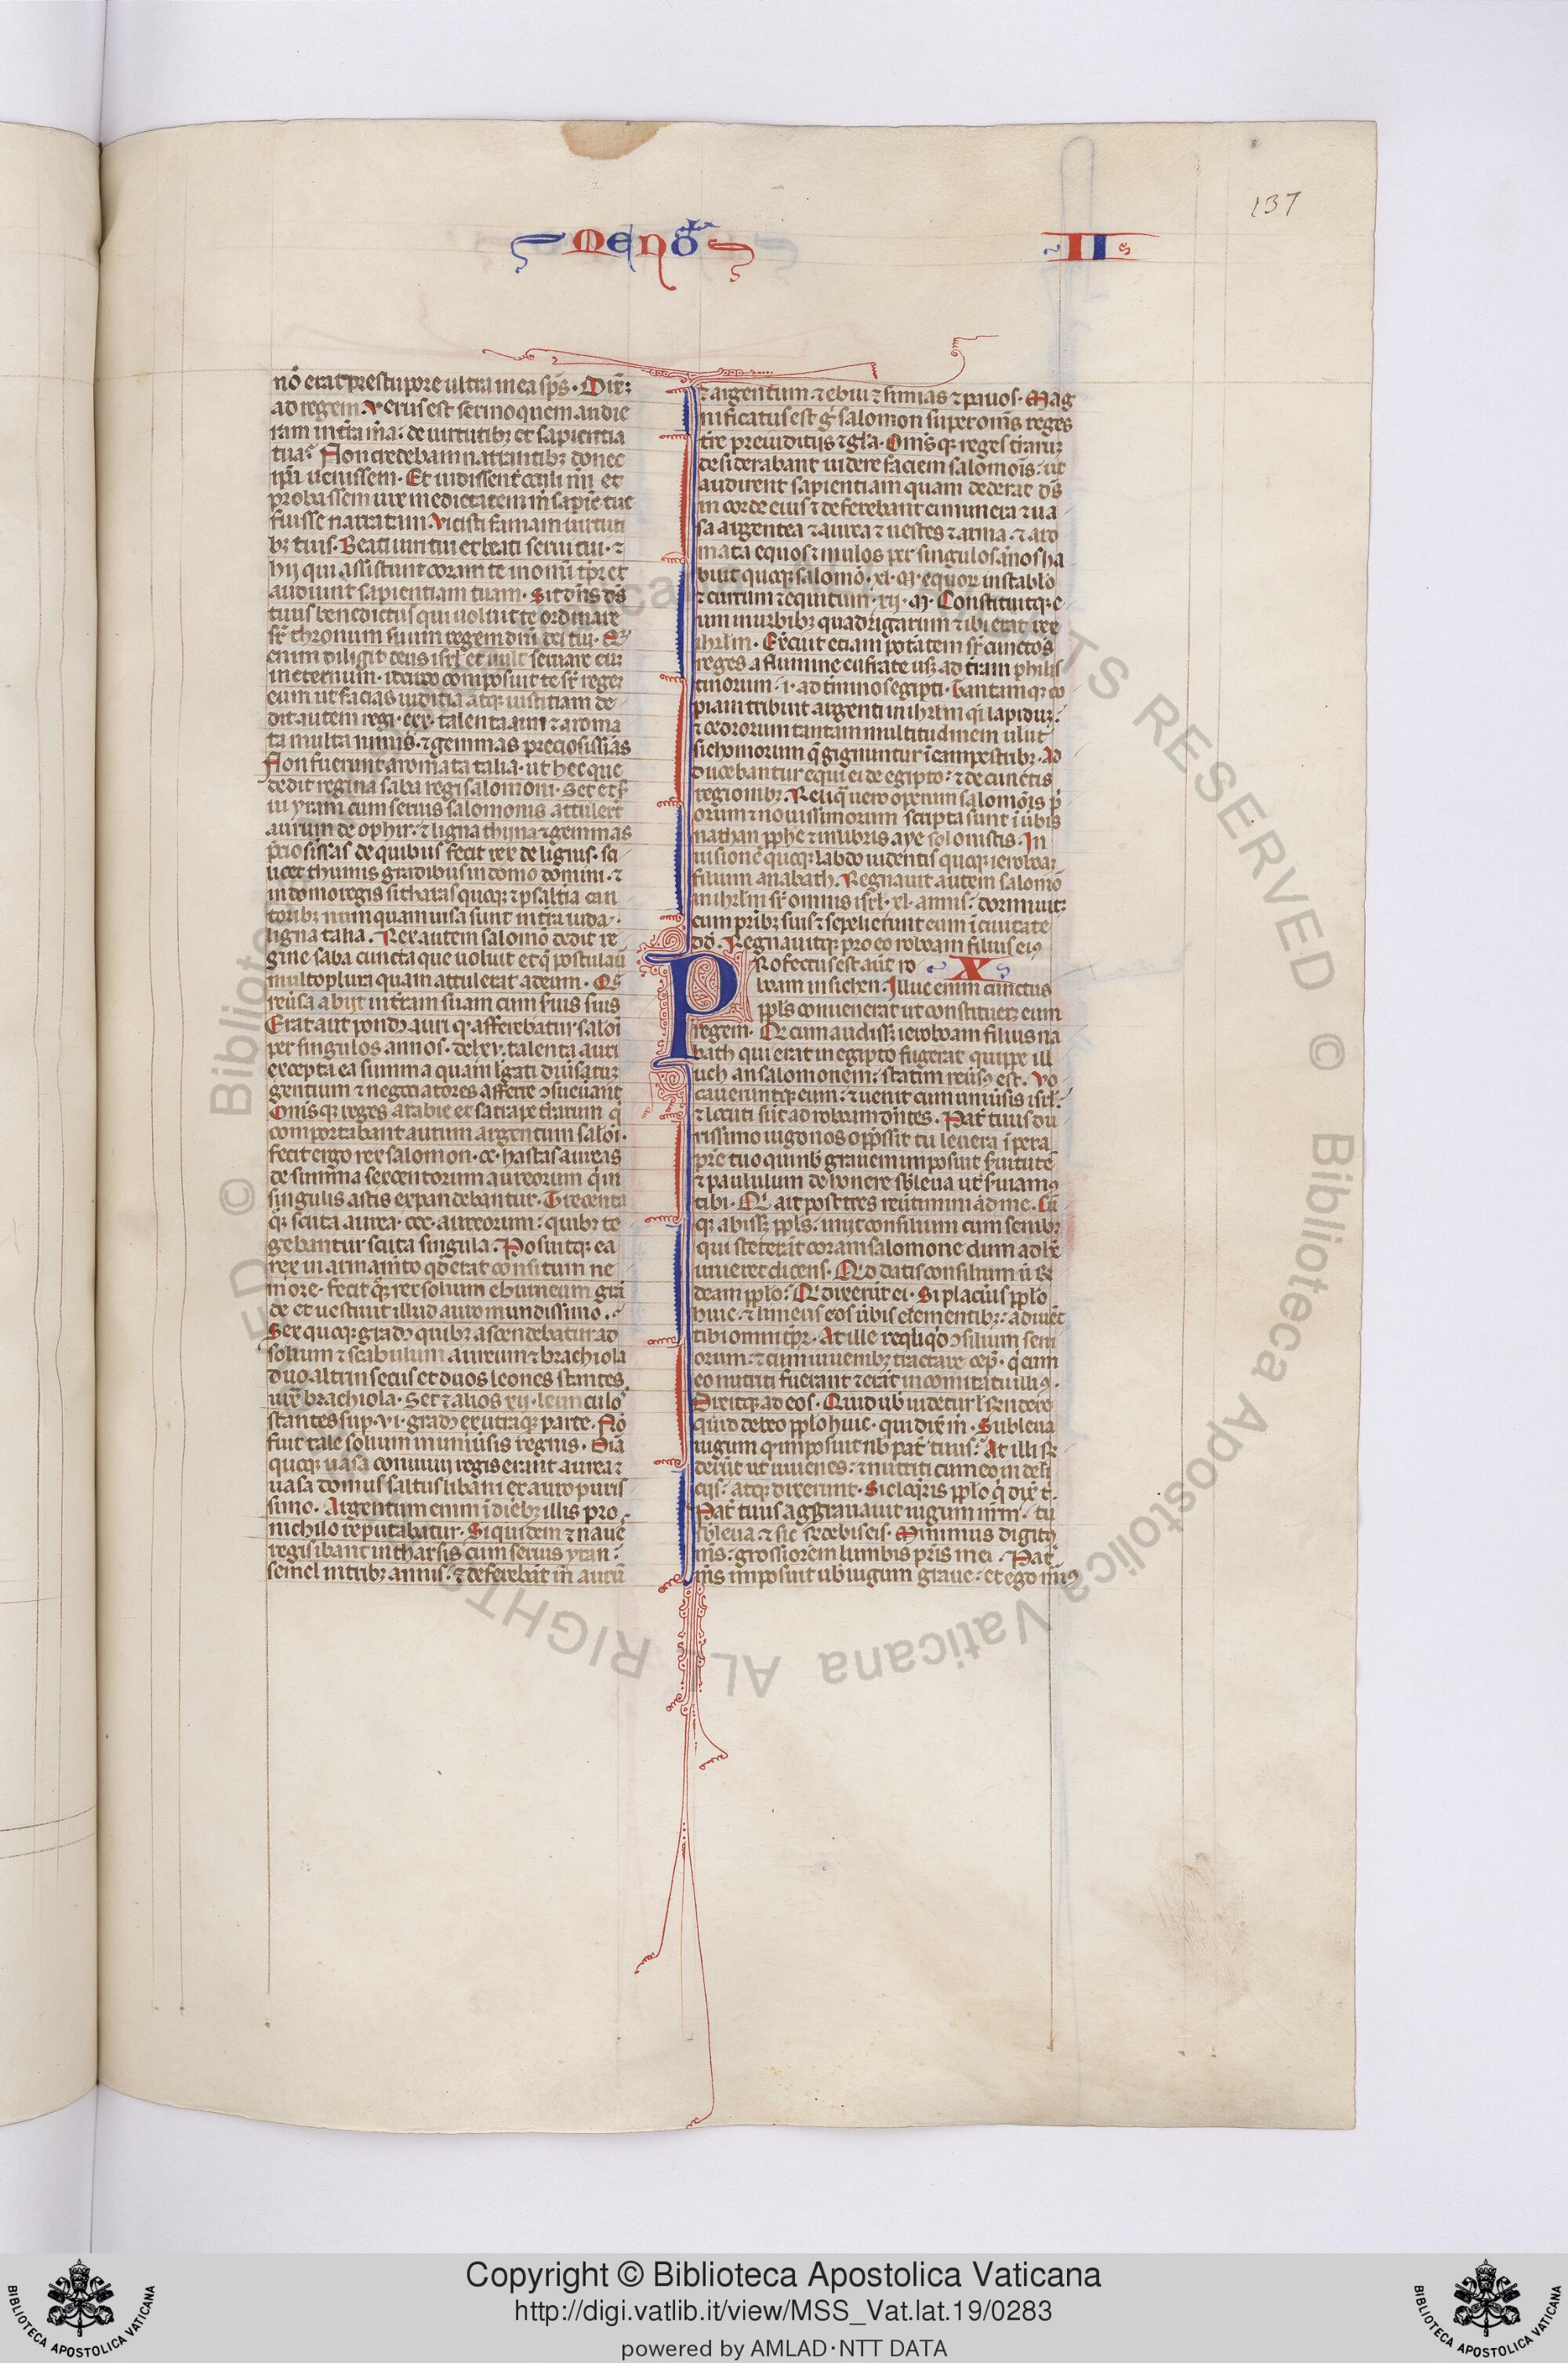 137
MENO
II
nō erat pre stupore ultra in ea sps̄. Dixit
ad regem. Verus est sermo quem audie
ram in terra mea: de virtutibz et sapientia
tua: Non credebam narrantibz donec
ipā venissem. Et vidissent oculi mī et
probassem vix medietatem m̄ sapīe tue
fuisse narratam. Vicisti famam virtuti
bz tuis. Beati viri tui et beati serui tui. ⁊
hij qui assistunt coram te in omī tp̄r et
audiunt sapientiam tuam. Sit dn̄s ds̄
tuus benedictus qui uoluit te ordinare
sr̄ thronum suum regem dn̄i dei tui. Qz
enim diligit deus isrl̄ et uult seruare eū
in eternum. idcirco composuit te sr̄ regez
eum ut facias iuditia atqz iustitiam de
dit autem regi. cxx. talenta auri ⁊ aroma
ta multa nimis. ⁊ gemmas preciosissimas
Non fuerunt aromata talia. ut hec que
dedit regina saba regi salomoni. Set et s̄
ui yram cum seruis salomonis attulert̄
aurum de ophir. ⁊ ligna thyna ⁊ gemmas
p̄ciosissīas de quibus fecit rex de lignis. sci
licet thynis gradibus in domo domini. ⁊
in domo regis sitharas quoqz ⁊ psaltia can
toribz nunquam uisa sunt in tr̄a iuda.
ligna talia. Rex autem salomō dedit re
gine saba cuncta que uoluit et q̄ postulau̅
multo plura quam attulerat ad eum. Q̄
reūsa abijt in tr̄am suam cum s̄uis suis
Erat aut̄ pondꝰ auri q̄ afferebatur salōi
per singulos annos. dclxv. talenta auri
excepta ea summa quam lgati diūsarūz
gentium ⁊ negociatores afferre ꝯsueuant̄
Om̄isqz reges arabie et satrape tr̄arum q̄
comportabant aurum argentum salōi.
fecit ergo rex salomon. cc. hastas aureas
de summa sexcentorum aureorum q̄ in
singulis astis expandebantur. Trecenta
qz scuta aurea. ccc. aureorum: quibz te
gebantur scuta singula. Posuitqz ea
rex in armamēto qd̄ erat consitum ne
more. fecit qz rex solium eburneum gra
de et uestiuit illud auro mundissimo.
Sex quoqz gradꝰ quibz ascendebatur ad
solium ⁊ scabulum aureum ⁊ brachiola
duo altrinsecus et duos leones stantes
iux̄ brachiola. Set ⁊ alios xij. leunculos
stantes sup̄. vi. gradꝰ ex utraqz parte. Nō
fuit tale solium in uniūsis regnis. Oīa
quoqz uasa conuiuij regis erant aurea ⁊
uasa domus saltus libani ex auro puris
simo. Argentum enim ī diebz illis pro
nichilo reputabatur. Siquidem ⁊ naue
regis ibant in tharsis cum seruis yram:
semel in tribz annis. ⁊ deferebāt in aurū
⁊ argentum ⁊ ebur ⁊ simias ⁊ pauos. Mag
nificatus est g̊ salomon super om̄is reges
tr̄e pre diuitijs ⁊ gl̄a. Om̄isqz reges tr̄aruz
desiderabant uidere faciem salomōis: ut
audirent sapientiam quam dederat ds̄
in corde eius ⁊ deferebant ei munera ⁊ ua
sa argentea ⁊ aurea ⁊ uestes ⁊ arma. ⁊ aro
mata equos ⁊ mulos per singulos ānos ha
buit quoqz salomō. xl. M. equoꝝ in stablo
⁊ curruum ⁊ equitum. xij. M. Constituitqz e
um in urbibz quadrigarum ⁊ ubi erat rex
ihrlm̄. Exercuit etiam potātem sr̄ cunctos
reges a flumine eufrate usqz ad tr̄am philis
tinorum. i. ad t̄minos egipti. tantamqz co
piam tribuit argenti in ihrlm̄ q̄ lapiduz:
⁊ cedrorum tantam multitudinem ulut
sichomorum q̄ gignuntur ī campestribz. Ad
ducebantur equi ei de egipto: ⁊ de cunctis
regionibz. Reliq̄ uero operum salomōis p̄
orum ⁊ nouissimorum scripta sunt ī ūbis
nathan pphe ⁊ in libris aye solonistis. In
uisione quoqz labdo uidentis quoqz ieroboaz
filium anabath. Regnauit autem salomō
in ihrlm̄ sr̄ omnis isrl̄. xl. annis: dormiuitz
cum patribz suis ⁊ sepelierunt eum ī ciuitate
dd̄. Regnauitqz pro eo roboam filius eiꝰ
Profectus est aut̄ ro X
boam in sichen: Illuc enim cunctus
ppls̄ conuenerat ut constituerz eum
regem. Qd̄ cum audissz ieroboam filius na
bath qui erat in egipto fugerat quippe ill
uch an̄ salomonem: statim reūsꝰ est. Vo
caueruntqz eum: ⁊ uenit cum uniūsis isrl̄:
⁊ locuti sūt ad roboam dn̄tes. Pat̄ tuus du
rissimo iugo nos opp̄ssit tu leuera īpera
pr̄e tuo qui nb̄ grauem imposuit s̄uitutē
⁊ paululum de honere sbleua ut s̄uiamꝰ
tibi. Qi ait post tres reūtimini ad me. Cū
qz abissz ppls̄. inijt consilium cum senibz
qui steterāt coram salomone dum adhc̄
uiueret dicens. Qd̄ datis consilium ū rn̄
deam pplo: Qi dixerūt ei. Si placūis pplo
huic. ⁊ linieris eos ūbis clementibz: s̄uiēt
tibi omni tp̄r. At ille reqliq̄d ꝯsilium seni
orum: ⁊ cum iuuenibz tractare cep̄. q̄ cum
eo nutriti fuerant ⁊ erāt in comitatu illiꝰ.
Dixitqz ad eos. Quid ub̄ uidetur ul̄ rn̄dere
quid debeo pplo huic. qui dix̄ m̄. Subleua
iugum q̄ imposuit nb̄ pat̄ tuus: At illi rn̄
derūt ut iuuenes: ⁊ nutriti cum eo in deli
cijs: atqz dixerunt. Sic loq̄ris pplo q̄ dix̄ t̄.
Pat̄ tuus aggrauauit iugum nr̄m. tu
sbleua. ⁊ sic rn̄debis eis. Minimus digitꝰ
ms̄: grossior ē lumbis pr̄is mei. Pat̄
ms̄ imposuit ub̄ iugum graue: et ego maiꝰ
Copyright © Biblioteca Apostolica Vaticana
http://digi.vatlib.it/view/MSS_Vat.lat.19/0283
powered by AMLAD·NTT DATA
BIBLIOTECA APOSTOLICA VATICANA
BIBLIOTECA APOSTOLICA VATICANA